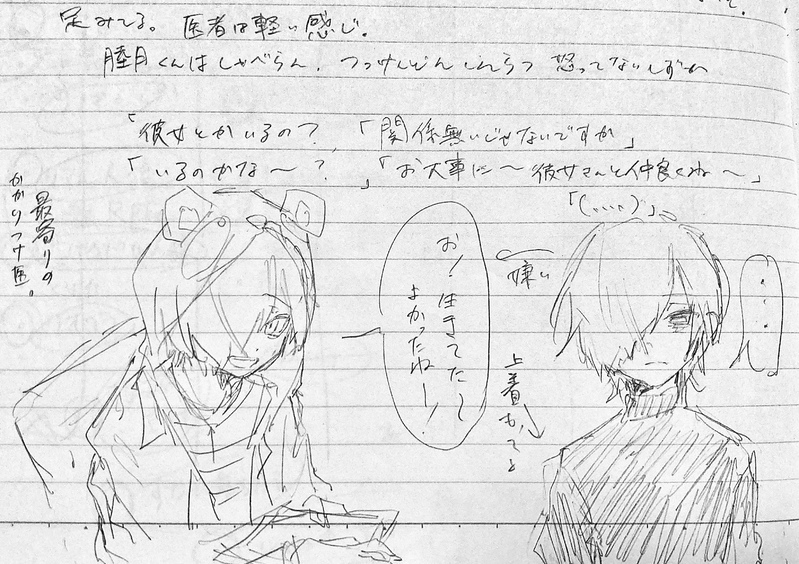 足みてる。 医者は軽い感じ.
睦月くんはしゃべらん. つっけんどん 怒ってないしずか
「彼女とかいるの?」「関係無いじゃないですか」
「いるのかな〜?」「お大事に〜 彼女さんと仲良くね〜」
「(....)」
最寄りの
かかりつけ医。
お!生きてた〜
よかったね〜!
嫌い
上着もってる
....